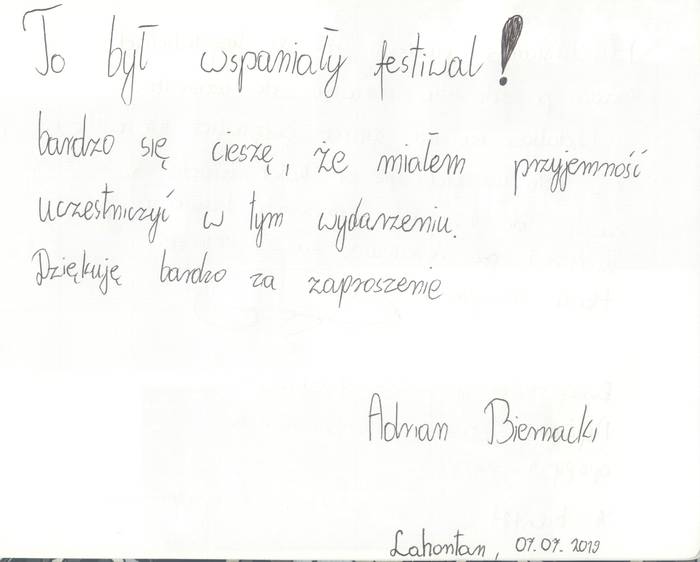 To był wspaniały festiwal!
bardzo się cieszę, że miałem przyjemność
uczestniczyć w tym wydarzeniu.
Dziękuję bardzo za zaproszenie
Adrian Biernacki
Lahontan, 07.07.2019